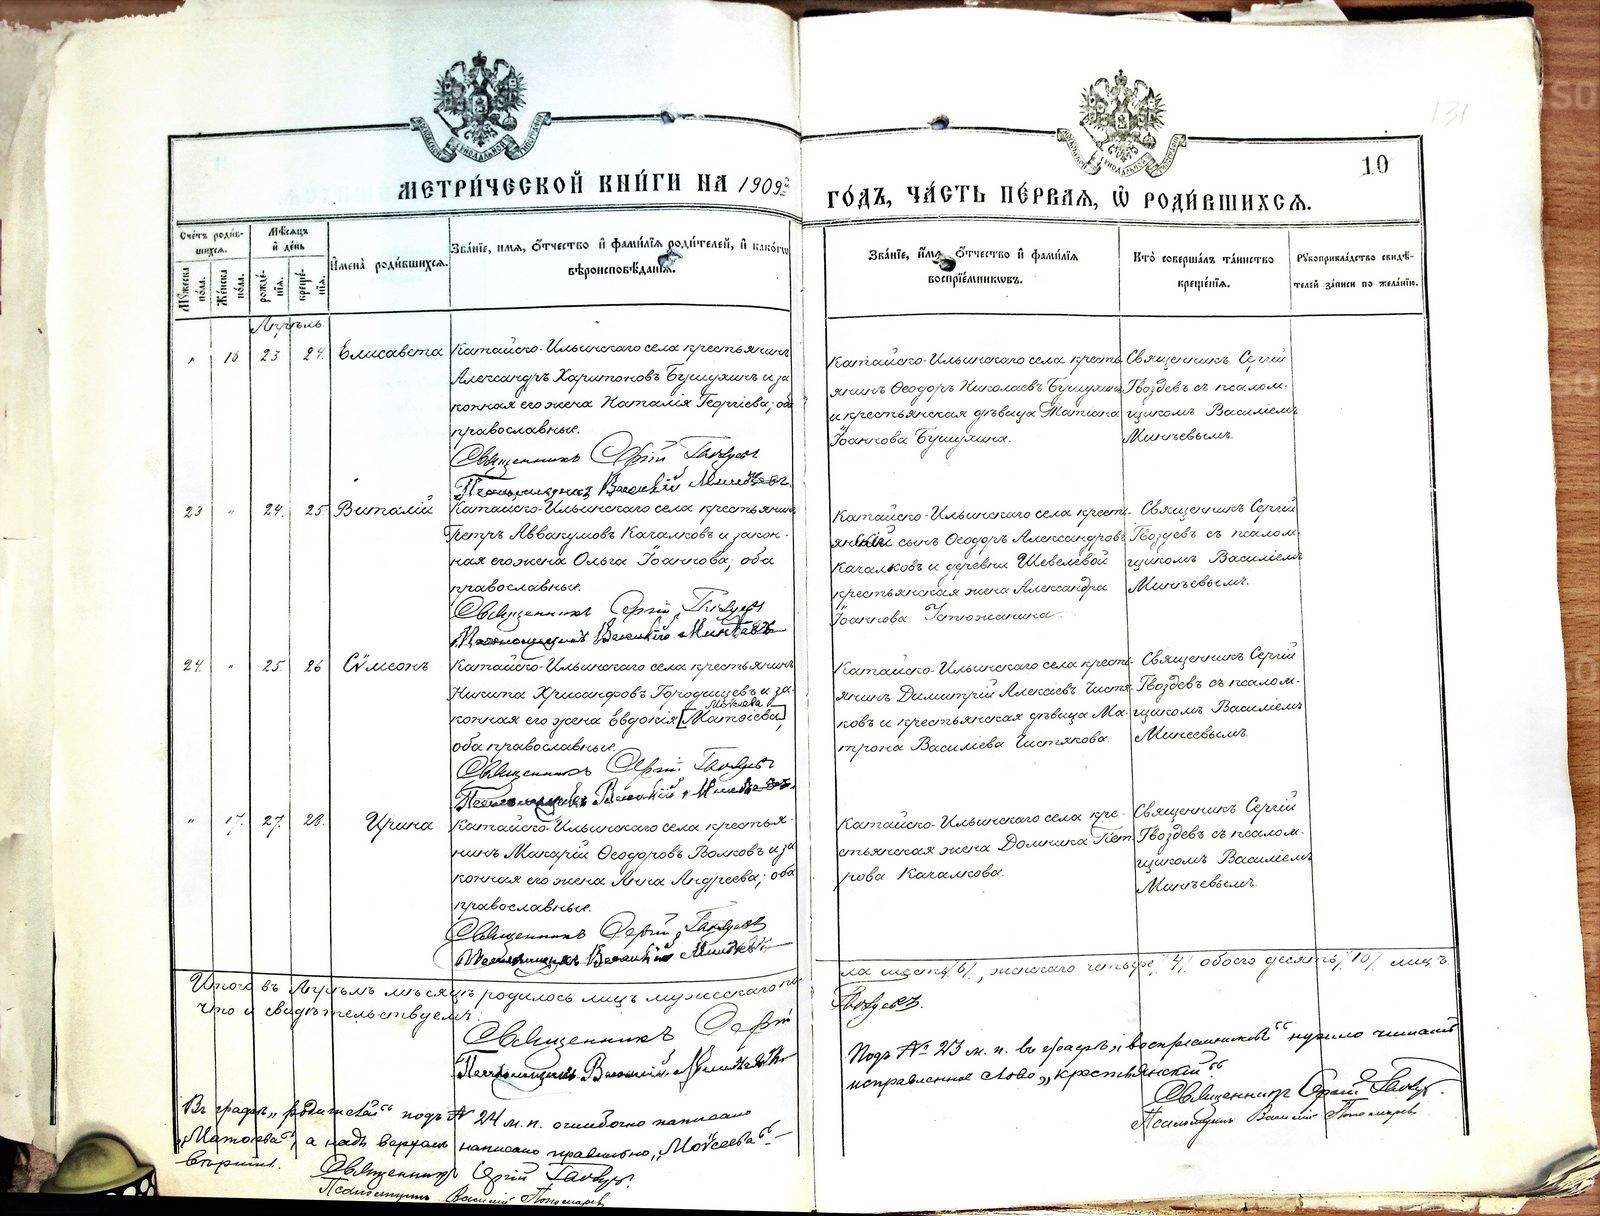 131
10
МЕТРИ́ЧЕСКОЙ КНИ́ГИ НА 1909й
ГО́ДЪ, ЧА́СТЬ ПЕ́РВАѦ, Ѡ҆ РОДИ́ВШИХСѦ.
Сче́тъ роди́вшихсѧ.
Мꙋ́жеска по́ла.
Же́нска по́ла.
Мѣ́сѧцъ и҆ де́нь
рожде́нїѧ.
креще́нїѧ.
И҆мена̀ роди́вшихсѧ.
Зва́нїе, и҆́мѧ, ѻ҆́тчество и҆ фами́лїѧ роди́телей, и҆ како́гѡ
вѣроисповѣ́данїѧ.
Зва́нїе, и҆́мѧ, ѻ҆́тчество и҆ фами́лїѧ
воспрїе́мникѡвъ.
Кто̀ соверша́лъ та́инство
креще́нїѧ.
Рꙋкоприкла́дство свидѣ́-
телей за́писи по жела́нїю.
Апрѣль
" 16 23 24. Елисавета
Катайско-Ильинскаго села крестьянинъ
Александръ Харитоновъ Бушухинъ и за
конная его жена Наталія Георгіева, оба
православные.
Священникъ Сергій Гвоздевъ
Псаломщикъ Василій Минѣевъ.
Катайско-Ильинскаго села кресть
янинъ Ѳеодоръ Николаевъ Бушухинъ
и крестьянская дѣвица Татиана
Іоаннова Бушухина.
Священникъ Сергій
Гвоздевъ съ псалом-
щикомъ Василіемъ
Минѣевымъ.
23 " 24. 25 Виталій
Катайско-Ильинскаго села крестьянинъ
Петръ Аввакумовъ Качалковъ и закон-
ная его жена Ольга Іоаннова, оба
православные.
Священникъ Сергій Гвоздевъ
Псаломщикъ Василій Минѣевъ
Катайско-Ильинскаго села кресть-
янскій сынъ Ѳеодоръ Александровъ
Качалковъ и деревни Шевелевой
крестьянская жена Александра
Іоаннова Устюжанина
Священникъ Сергій
Гвоздевъ съ псалом-
щикомъ Василіемъ
Минѣевымъ.
24. " 25. 26 Сѵмеонъ
Катайско-Ильинскаго села крестьянинъ
Никита Хрисанфовъ Городищевъ и за-
Моѵсеева
конная его жена Евдокія [Матѳеева],
оба православные.
Священникъ Сергій Гвоздевъ
Псаломщикъ Василій Минѣевъ.
Катайско-Ильинскаго села кресть-
янинъ Димитрій Алексіевъ Чистя-
ковъ и крестьянская дѣвица Ма-
трона Василиева Чистякова.
Священникъ Сергій
Гвоздевъ съ псалом-
щикомъ Василіемъ
Минеевымъ.
" 17. 27. 28. Ирина
Катайско-Ильинскаго села крестья-
нинъ Макарій Ѳеодоровъ Волковъ и за
конная его жена Анна Андреева, оба
православные.
Священникъ Сергій Гвоздевъ
Псаломщикъ Василій Минѣевъ
Катайско-Ильинскаго села кре-
стьянская жена Домника Пет-
рова Качалкова.
Священникъ Сергій
Гвоздевъ съ псалом-
щикомъ Василіемъ
Минѣевымъ.
Итого въ Апрѣлѣ мѣсяцѣ родилось лицъ мужескаго по
ла шесть /6/, женскаго четыре /4/ обоего десять /10/ лицъ
что и свидѣтельствуемъ:
Священникъ Сергій
Гвоздевъ.
Псаломщикъ Василій Минѣевъ
Подъ № 23 м. п. въ графѣ „воспріемниковъ“ нужно читать
исправленное слово „крестьянскій“
Священникъ Сергій Гвоздевъ.
Псаломщикъ Василій Пономаревъ
Въ графѣ „родителей“ подъ № 24 м. п. ошибочно написано
„Матѳеева“, а надъ верхомъ написано правильно „Моѵсеева“
вѣрить.
Священникъ Сергій Гвоздевъ.
Псаломщикъ Василій Пономаревъ